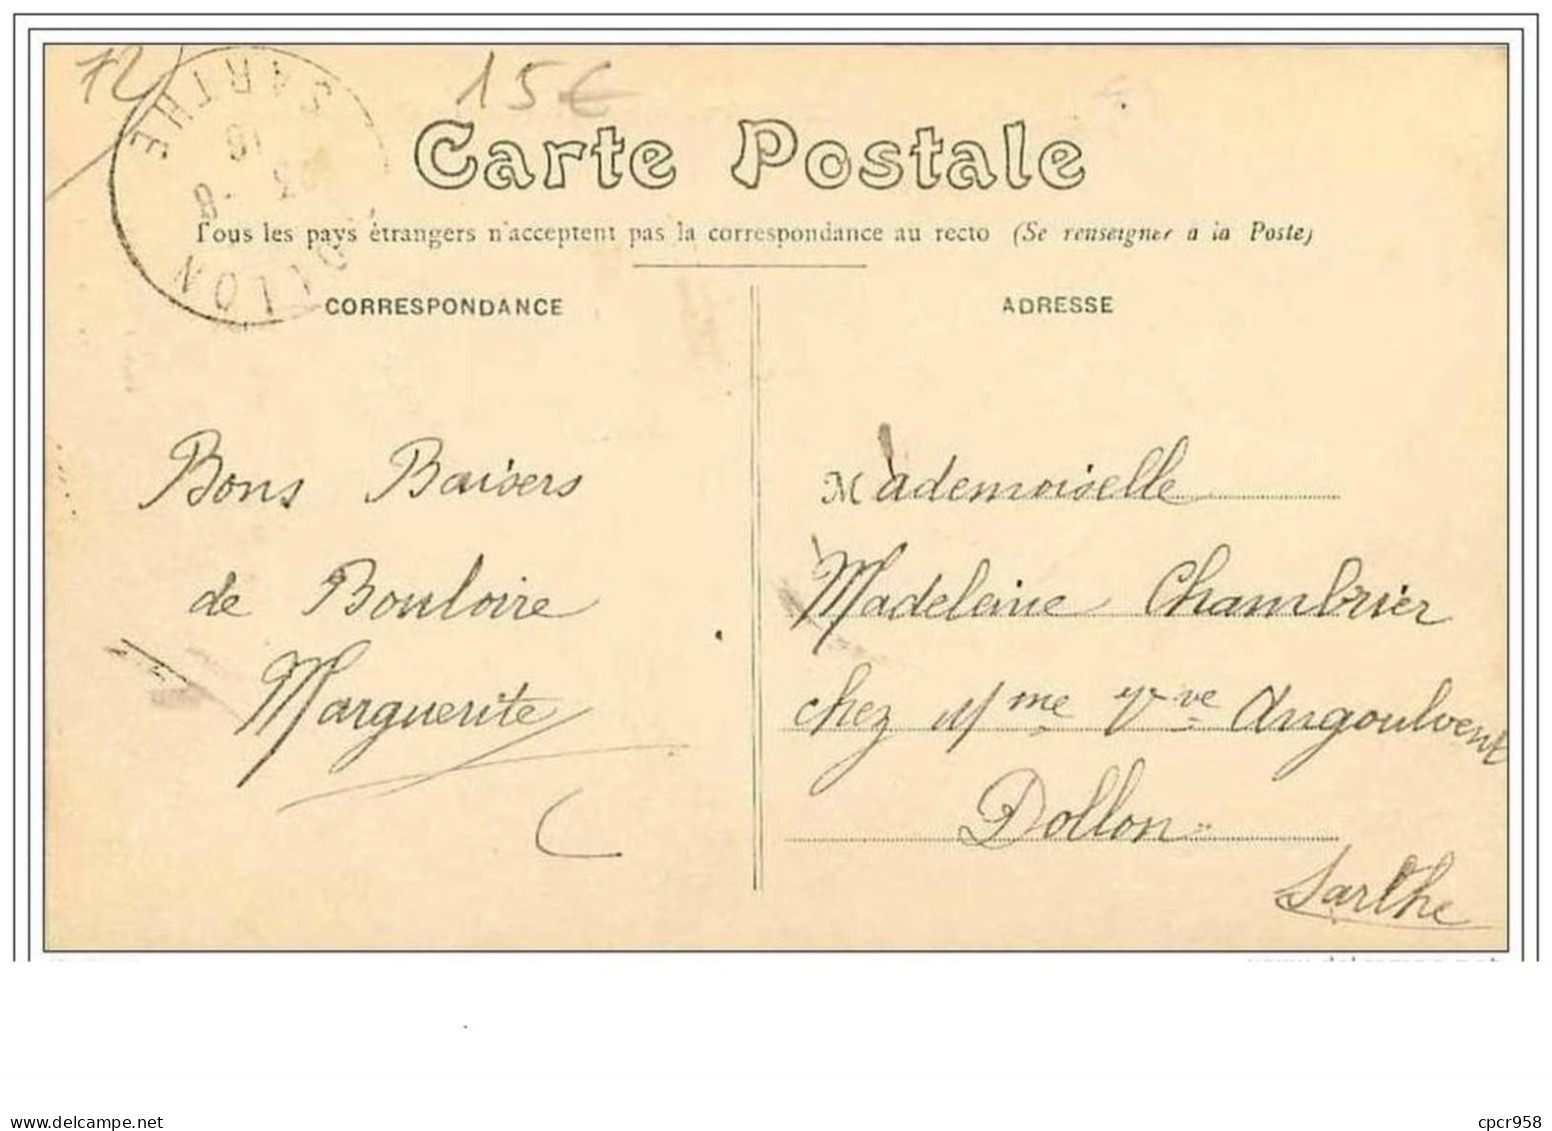 72
15€
SARTHE
DOLLON
Carte Postale
Tous les pays étrangers n'acceptent pas la correspondance au recto (Se renseigner à la Poste)
CORRESPONDANCE
ADRESSE
Bons Baisers
de Bouloire
Marguerite
Mademoiselle
Madeleine Chambrier
chez Mme Vve Angoulvent
Dollon
Sarthe
www.delcampe.net
cpcr958